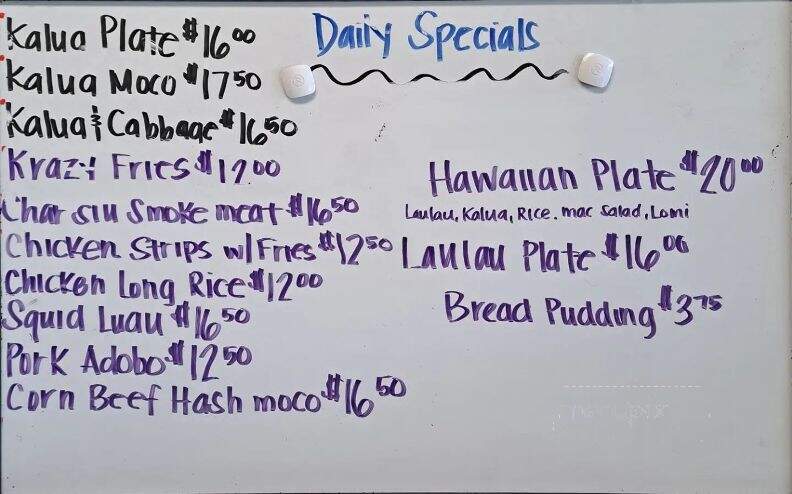 Daily Specials
Kalua Plate $16.00
Kalua Moco $17.50
Kalua & Cabbage $16.50
Krazy Fries $12.00
Char siu Smoke meat $16.50
Chicken Strips w/Fries $12.50
Chicken Long Rice $12.00
Squid Luau $16.50
Pork Adobo $12.50
Corn Beef Hash moco $16.50
Hawaiian Plate $20.00
Laulau, Kalua, Rice, mac Salad, Lomi
Laulau Plate $16.00
Bread Pudding $3.75